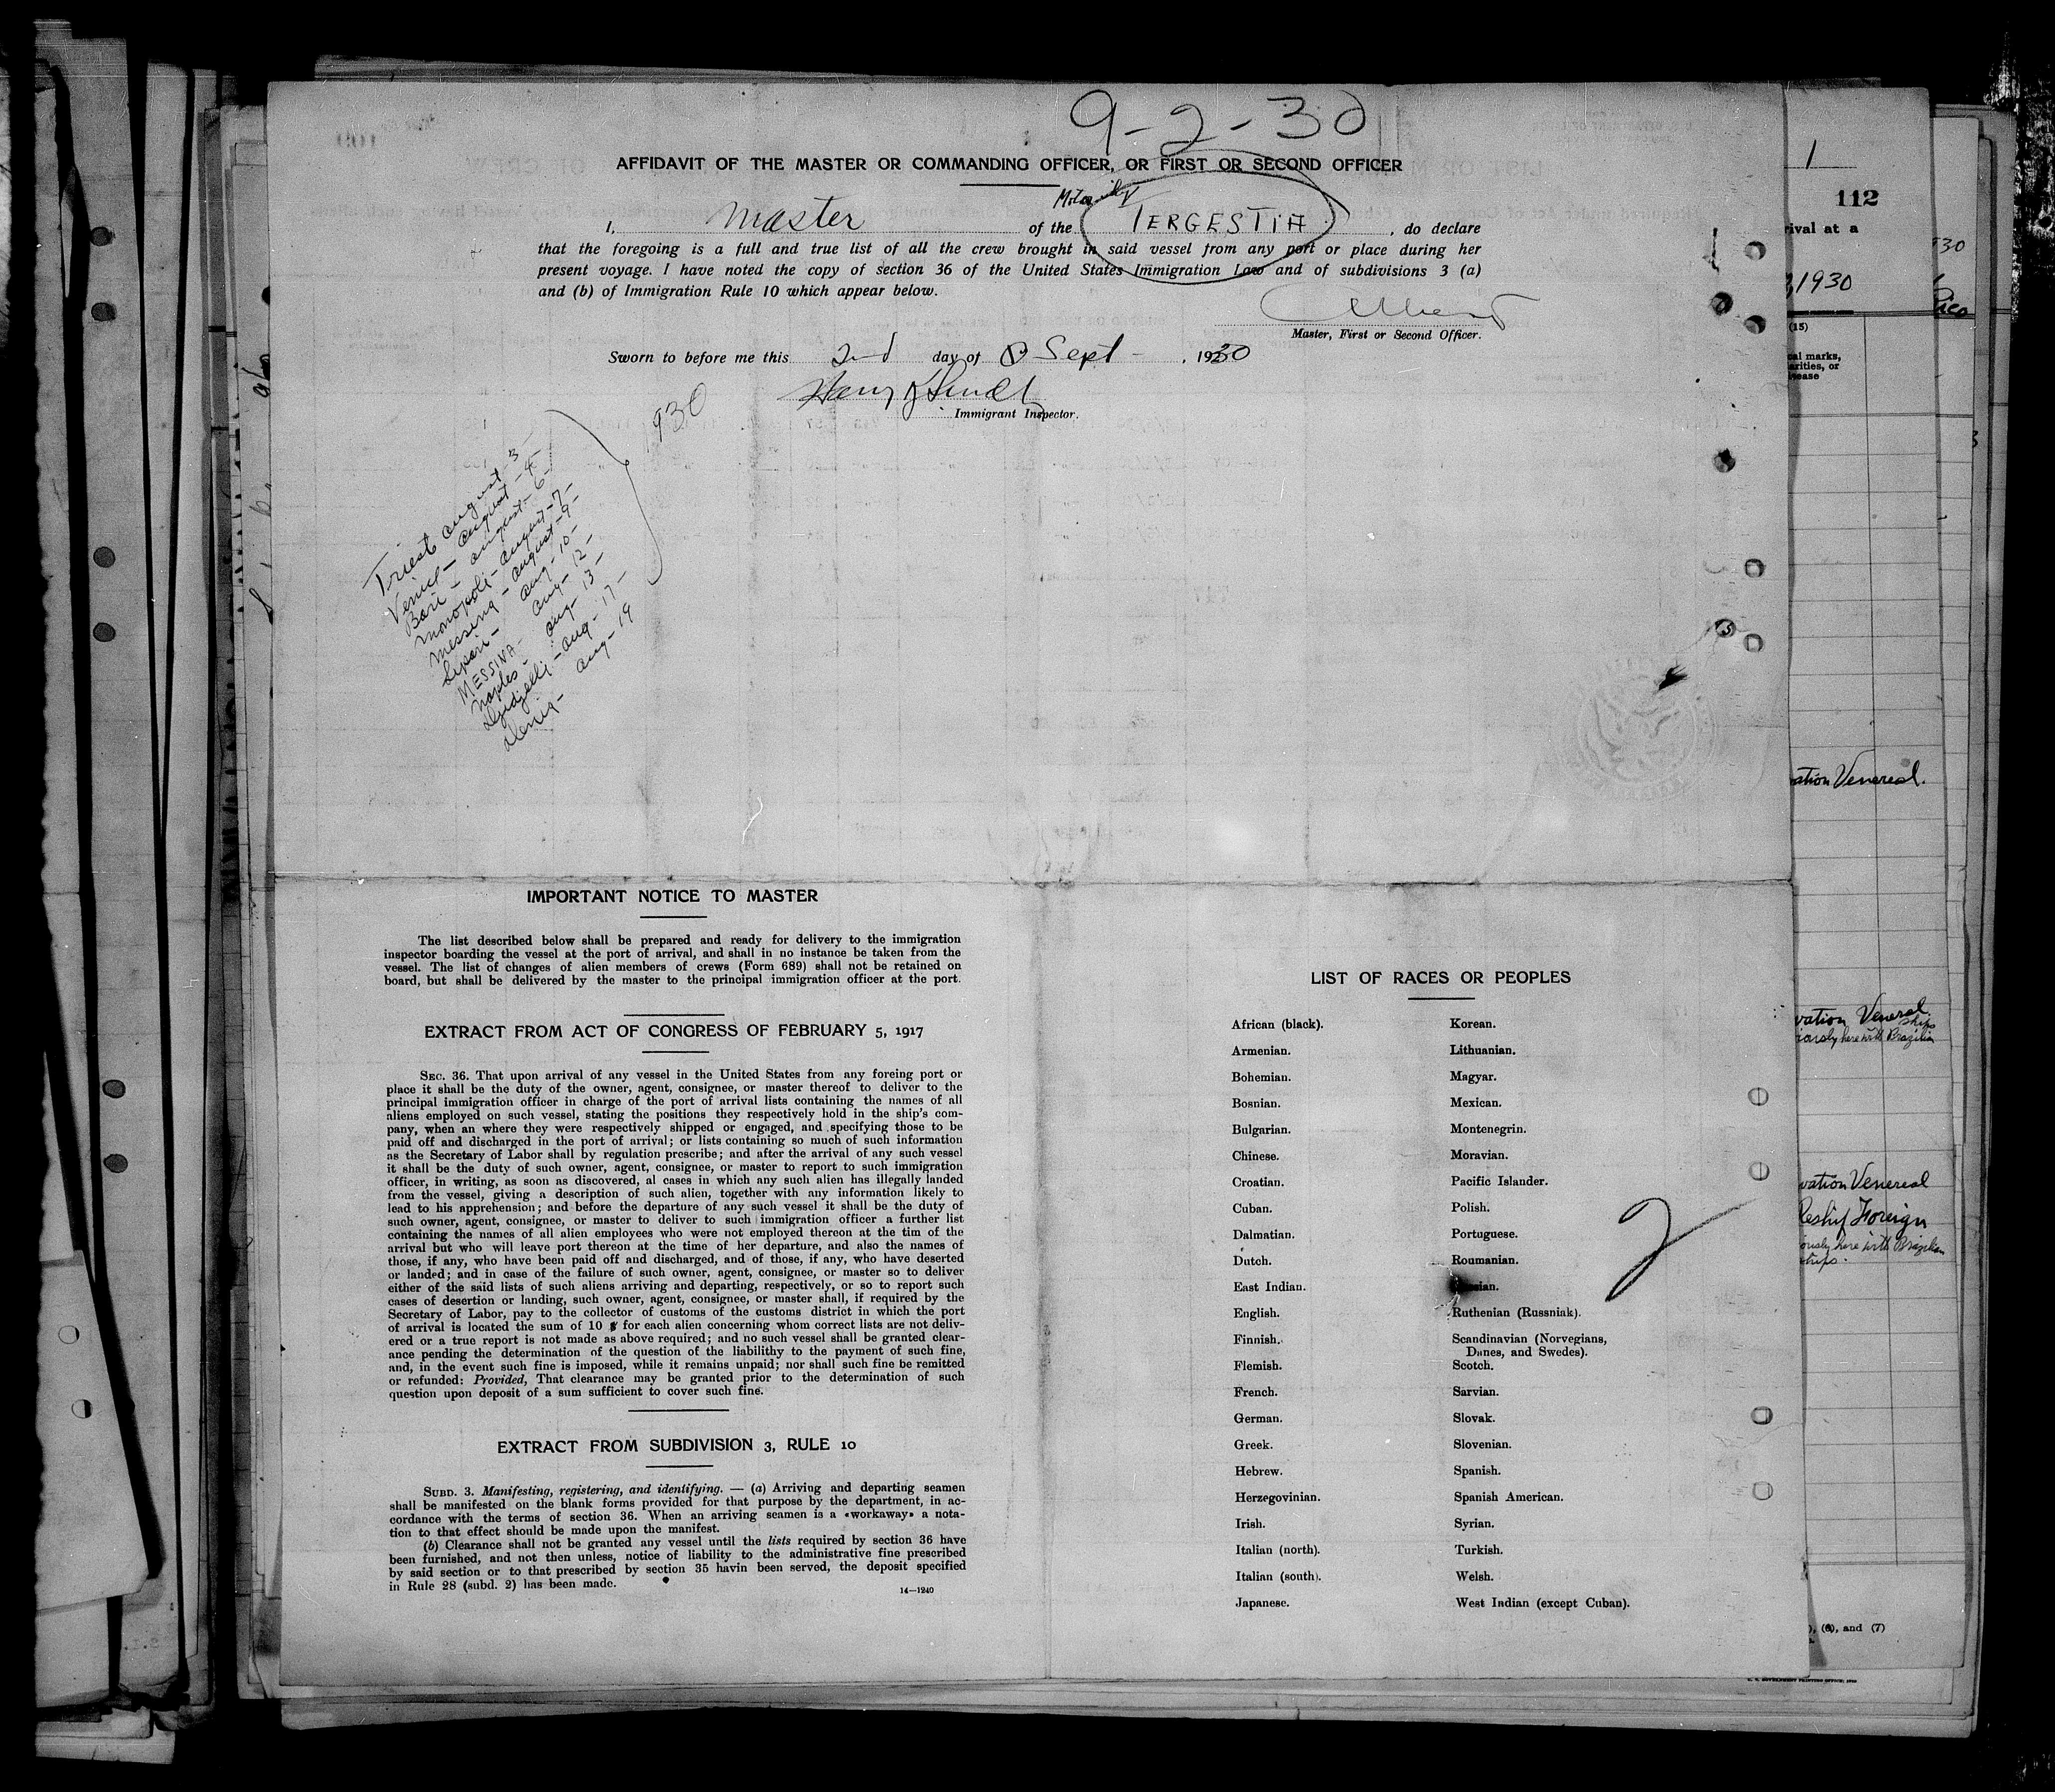 9-2-30
AFFIDAVIT OF THE MASTER OR COMMANDING OFFICER, OR FIRST OR SECOND OFFICER
I, Master of the TERGESTIA, do declare
that the foregoing is a full and true list of all the crew brought in said vessel from any port or place during her
present voyage. I have noted the copy of section 36 of the United States Immigration Law and of subdivisions 3 (a)
and (b) of Immigration Rule 10 which appear below.
Master, First or Second Officer.
Sworn to before me this 2nd day of Sept - , 1930
Immigrant Inspector.
1930
Trieste august 3 -
Venice - august - 4 -
Bari - august - 6 -
Monopoli - august - 7 -
Messina - august - 9 -
Lipari - aug - 10 -
MESSINA - aug - 12 -
Naples - aug - 13 -
Djidjelli - aug - 17 -
Denia - aug - 19
IMPORTANT NOTICE TO MASTER
The list described below shall be prepared and ready for delivery to the immigration
inspector boarding the vessel at the port of arrival, and shall in no instance be taken from the
vessel. The list of changes of alien members of crews (Form 689) shall not be retained on
board, but shall be delivered by the master to the principal immigration officer at the port.
EXTRACT FROM ACT OF CONGRESS OF FEBRUARY 5, 1917
SEC. 36. That upon arrival of any vessel in the United States from any foreing port or
place it shall be the duty of the owner, agent, consignee, or master thereof to deliver to the
principal immigration officer in charge of the port of arrival lists containing the names of all
aliens employed on such vessel, stating the positions they respectively hold in the ship's com-
pany, when an where they were respectively shipped or engaged, and specifying those to be
paid off and discharged in the port of arrival; or lists containing so much of such information
as the Secretary of Labor shall by regulation prescribe; and after the arrival of any such vessel
it shall be the duty of such owner, agent, consignee, or master to report to such immigration
officer, in writing, as soon as discovered, al cases in which any such alien has illegally landed
from the vessel, giving a description of such alien, together with any information likely to
lead to his apprehension; and before the departure of any such vessel it shall be the duty of
such owner, agent, consignee, or master to deliver to such immigration officer a further list
containing the names of all alien employees who were not employed thereon at the tim of the
arrival but who will leave port thereon at the time of her departure, and also the names of
those, if any, who have been paid off and discharged, and of those, if any, who have deserted
or landed; and in case of the failure of such owner, agent, consignee, or master so to deliver
either of the said lists of such aliens arriving and departing, respectively, or so to report such
cases of desertion or landing, such owner, agent, consignee, or master shall, if required by the
Secretary of Labor, pay to the collector of customs of the customs district in which the port
of arrival is located the sum of 10 $ for each alien concerning whom correct lists are not deliv-
ered or a true report is not made as above required; and no such vessel shall be granted clear-
ance pending the determination of the question of the liabilithy to the payment of such fine,
and, in the event such fine is imposed, while it remains unpaid; nor shall such fine be remitted
or refunded: Provided, That clearance may be granted prior to the determination of such
question upon deposit of a sum sufficient to cover such fine.
EXTRACT FROM SUBDIVISION 3, RULE 10
SUBD. 3. Manifesting, registering, and identifying. — (a) Arriving and departing seamen
shall be manifested on the blank forms provided for that purpose by the department, in ac-
cordance with the terms of section 36. When an arriving seamen is a «workaway» a nota-
tion to that effect should be made upon the manifest.
(b) Clearance shall not be granted any vessel until the lists required by section 36 have
been furnished, and not then unless, notice of liability to the administrative fine prescribed
by said section or to that prescribed by section 35 havin been served, the deposit specified
in Rule 28 (subd. 2) has been made.
14—1240
LIST OF RACES OR PEOPLES
African (black).
Armenian.
Bohemian.
Bosnian.
Bulgarian.
Chinese.
Croatian.
Cuban.
Dalmatian.
Dutch.
East Indian.
English.
Finnish.
Flemish.
French.
German.
Greek.
Hebrew.
Herzegovinian.
Irish.
Italian (north).
Italian (south).
Japanese.
Korean.
Lithuanian.
Magyar.
Mexican.
Montenegrin.
Moravian.
Pacific Islander.
Polish.
Portuguese.
Roumanian.
Ruthenian (Russniak).
Scandinavian (Norvegians,
Danes, and Swedes).
Scotch.
Sarvian.
Slovak.
Slovenian.
Spanish.
Spanish American.
Syrian.
Turkish.
Welsh.
West Indian (except Cuban).
2
1
112
rival at a
1930
(15)
al marks,
arities, or
ease
ation Venereal.
vation Venereal
ships
iously here with Brazilian
vation Venereal
Reship Foreign
ously here with Brazilian
ships.
), (6), and (7)
U. S. GOVERNMENT PRINTING OFFICE: 1930